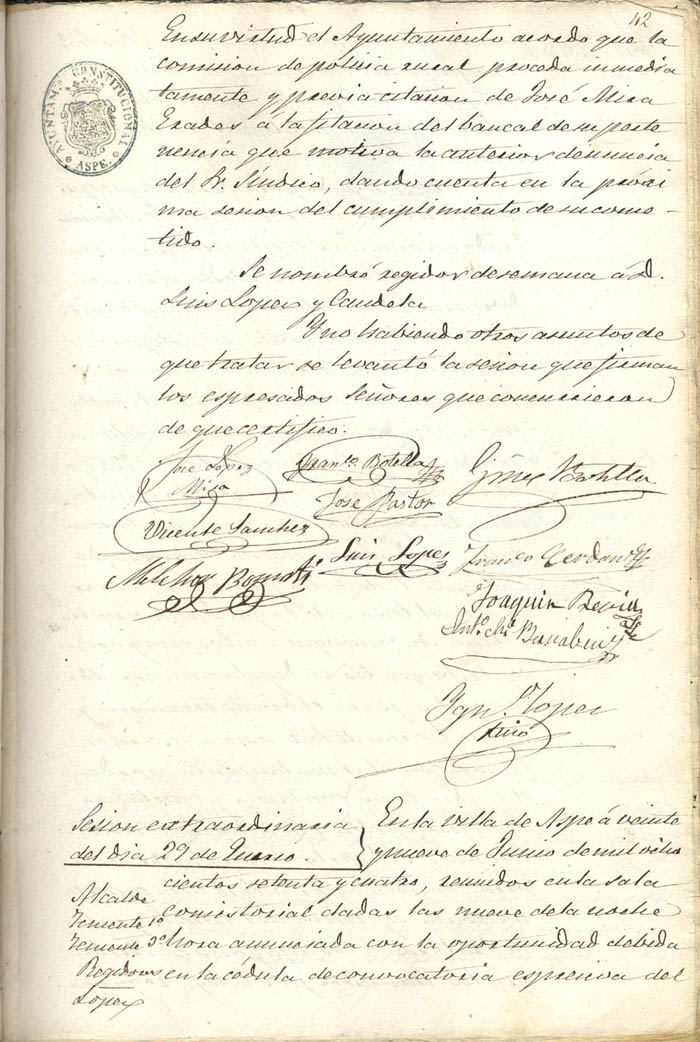 42
AYUNTAMIENTO CONSTITUCIONAL
ASPE.
En su virtud el Ayuntamiento acordo que la
comision de policia rural proceda inmedia
tamente y previa citacion de José Mira
Erades á la fitacion del bancal de su perte
nencia que motiva la anterior denuncia
del Sr. Síndico, dando cuenta en la próxi
ma sesion del cumplimiento de su come-
tido.
Se nombró regidor de semana á D.
Luis Lopez y Candela
Y no habiendo otros asuntos de
que tratar se levantó la sesion que firman
los espresados Señores que concurrieron
de que certifico.
José López
Mira
Franco. Botella
Gines Botella
Vicente Sanchez
José Pastor
Melchor
Luis Lopez
Franco Cerdan
Joaquin
Anto
Ign. Lopez
Sesion extraordinaria
del dia 29 de Junio.
En la villa de Aspe á veinte
y nueve de Junio de mil ocho
cientos setenta y cuatro, reunidos en la sala
consistorial dadas las nueve de la noche
hora anunciada con la oportunidad debida
en la cédula de convocatoria espresiva del
Alcalde
Teniente 1º
Teniente 3º
Regidores
López